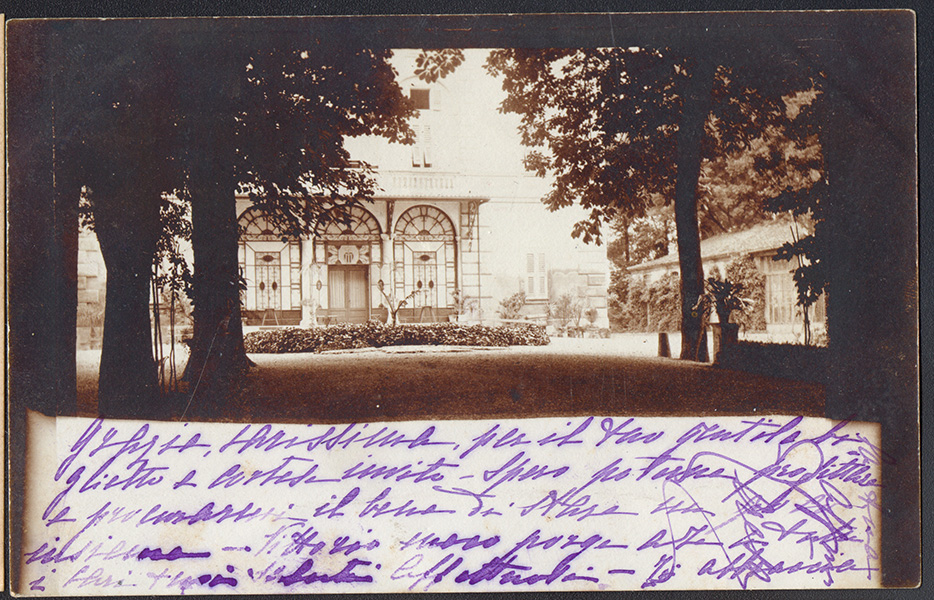 Grazie, carissima, per il tuo gentile bi
glietto e cortese invito - Spero poterne profittare
e procurarmi il bene di stare un po'
insieme - Vittorio meco porge a te e tutti
i cari tuoi saluti affettuosi - Ti abbraccia